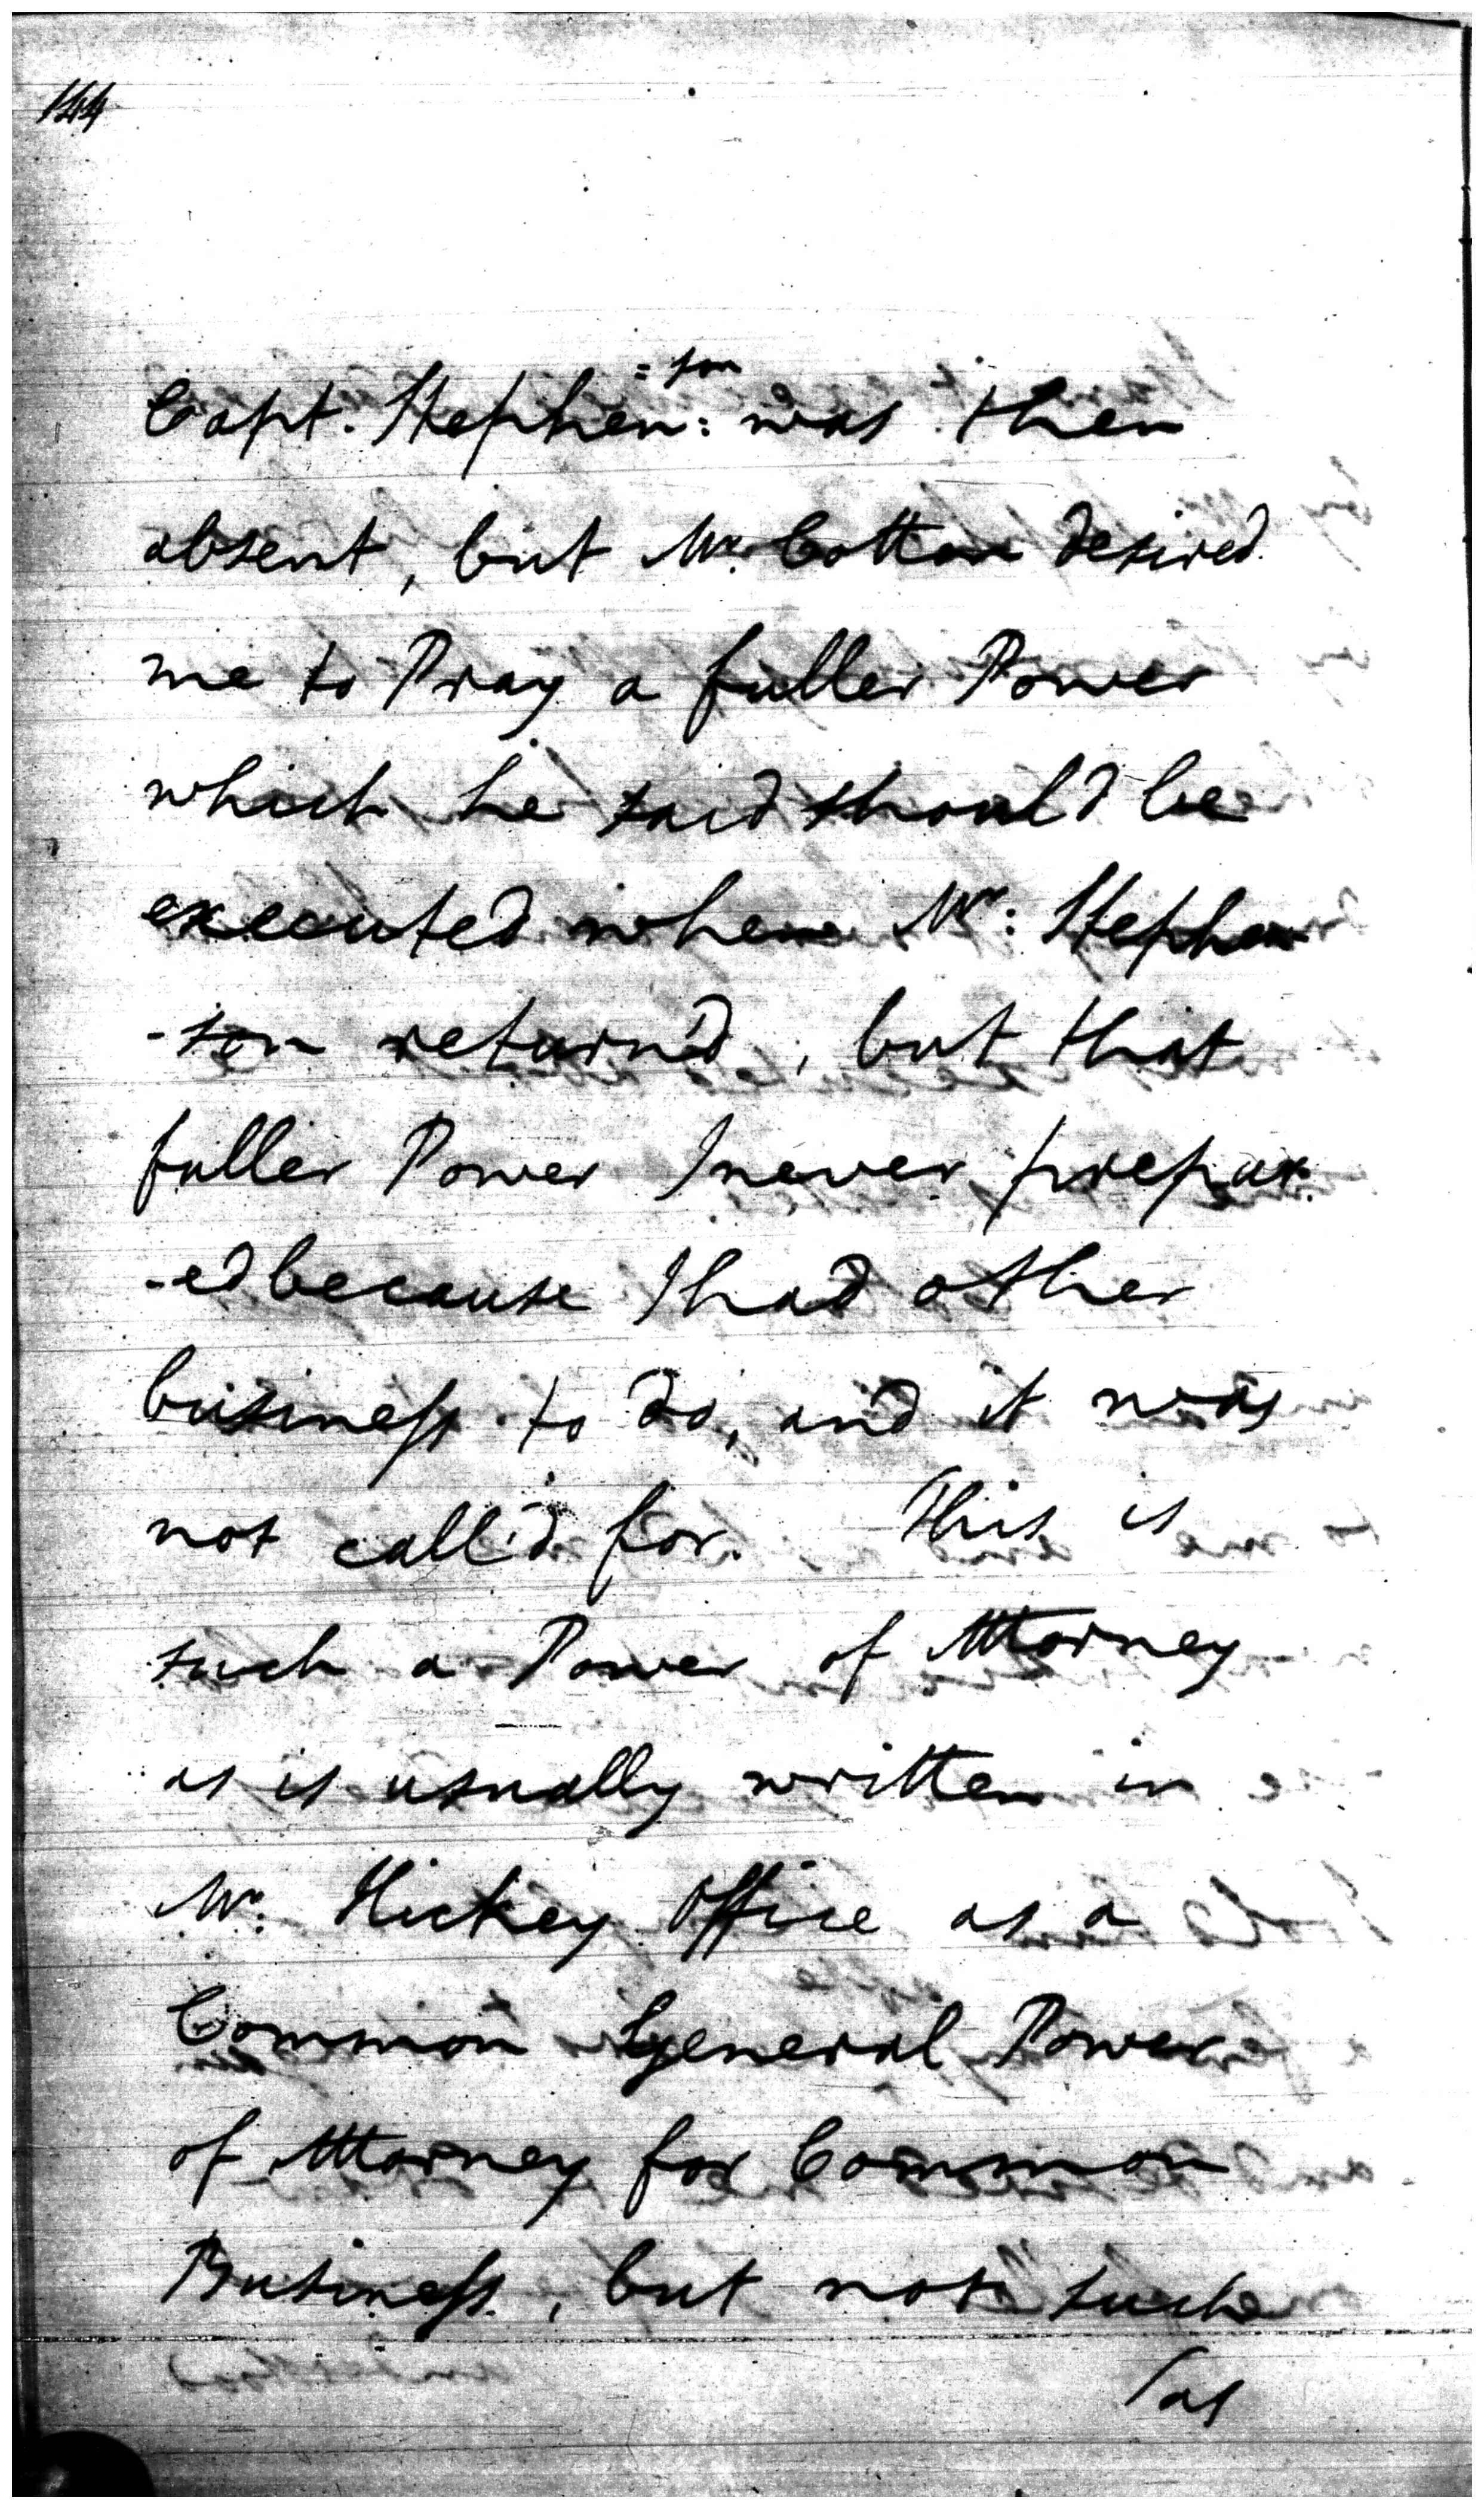 144
Capt. Stephen:=son was then
absent, but Mr. Cotton desired
me to Pray a fuller Power
which he said should be
executed when Mr: Stephen
-son return'd, but that
fuller Power I never prepar:
-ed because I had other
business to do, and it was
not call'd for. This is
such a Power of Attorney
as is usually written in
Mr: Hickey Office as a
Common General Power
of Attorney for Common
Business, but not such
/as